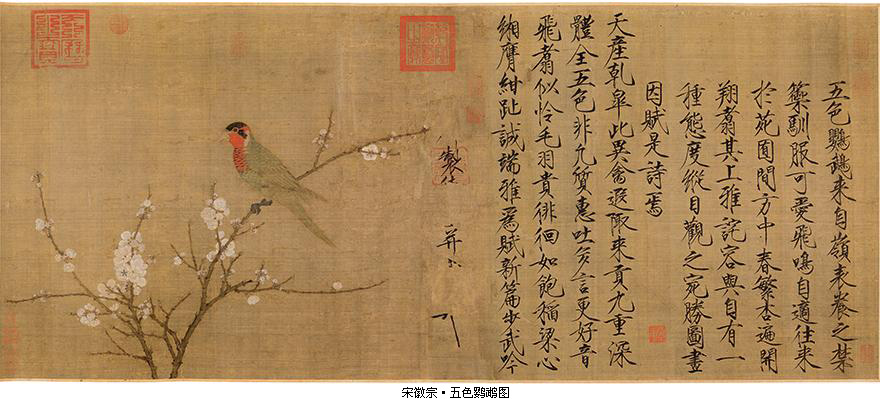 五色鸚鵡来自嶺表養之禁
籞馴服可愛飛鳴自適往来
於苑囿間方中春繁杏遍開
翔翥其上雅詫容與自有一
種態度縱目觀之宛勝圖畫
因賦是詩焉
天産乹皋此異禽遐陬来貢九重深
體全五色非凡質惠吐多言更好音
飛翥似憐毛羽貴徘徊如飽稲粱心
緗膺紺趾誠端雅爲賦新篇步武吟
製
宋徽宗·五色鹦鹉图